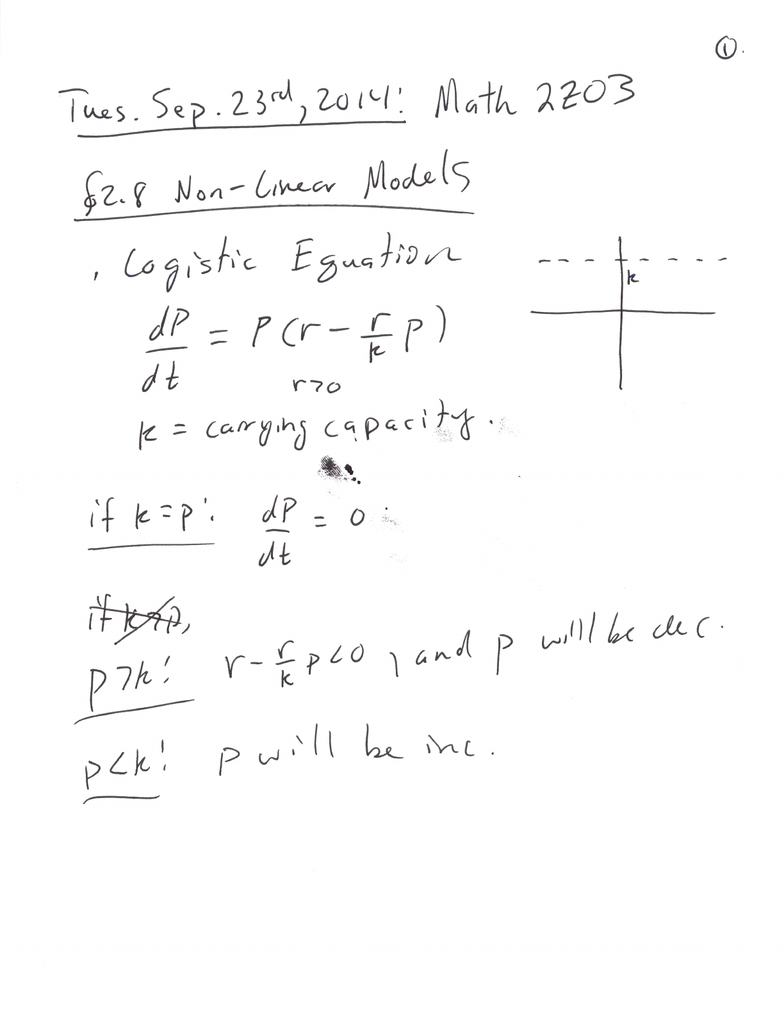 ①.
Tues. Sep. 23rd, 2014: Math 2Z03
§2.8 Non-Linear Models
, Logistic Equation
dP/dt = P(r - r/k P)
k
r>0
k = carrying capacity.
if k=p: dP/dt = 0
if k>p,
p>k: r - r/k p<0, and p will be dec.
p<k: p will be inc.